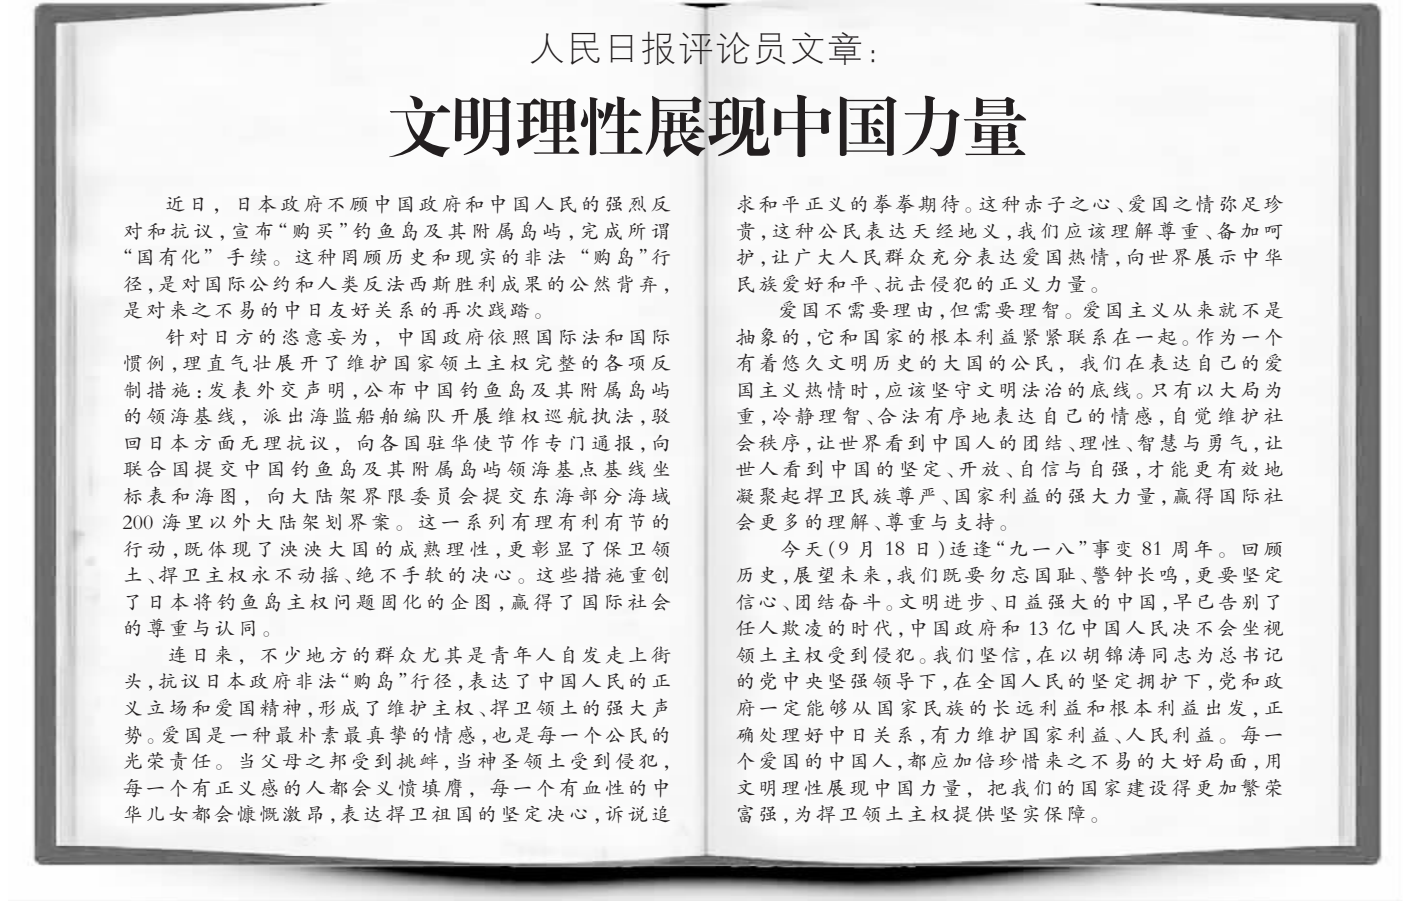 人民日报评论员文章：
文明理性展现中国力量
近日，日本政府不顾中国政府和中国人民的强烈反
对和抗议，宣布“购买”钓鱼岛及其附属岛屿，完成所谓
“国有化”手续。这种罔顾历史和现实的非法“购岛”行
径，是对国际公约和人类反法西斯胜利成果的公然背弃，
是对来之不易的中日友好关系的再次践踏。
针对日方的恣意妄为，中国政府依照国际法和国际
惯例，理直气壮展开了维护国家领土主权完整的各项反
制措施：发表外交声明，公布中国钓鱼岛及其附属岛屿
的领海基线，派出海监船舶编队开展维权巡航执法，驳
回日本方面无理抗议，向各国驻华使节作专门通报，向
联合国提交中国钓鱼岛及其附属岛屿领海基点基线坐
标表和海图，向大陆架界限委员会提交东海部分海域
200 海里以外大陆架划界案。这一系列有理有利有节的
行动，既体现了泱泱大国的成熟理性，更彰显了保卫领
土、捍卫主权永不动摇、绝不手软的决心。这些措施重创
了日本将钓鱼岛主权问题固化的企图，赢得了国际社会
的尊重与认同。
连日来，不少地方的群众尤其是青年人自发走上街
头，抗议日本政府非法“购岛”行径，表达了中国人民的正
义立场和爱国精神，形成了维护主权、捍卫领土的强大声
势。爱国是一种最朴素最真挚的情感，也是每一个公民的
光荣责任。当父母之邦受到挑衅，当神圣领土受到侵犯，
每一个有正义感的人都会义愤填膺，每一个有血性的中
华儿女都会慷慨激昂，表达捍卫祖国的坚定决心，诉说追
求和平正义的拳拳期待。这种赤子之心、爱国之情弥足珍
贵，这种公民表达天经地义，我们应该理解尊重、备加呵
护，让广大人民群众充分表达爱国热情，向世界展示中华
民族爱好和平、抗击侵犯的正义力量。
爱国不需要理由，但需要理智。爱国主义从来就不是
抽象的，它和国家的根本利益紧紧联系在一起。作为一个
有着悠久文明历史的大国的公民，我们在表达自己的爱
国主义热情时，应该坚守文明法治的底线。只有以大局为
重，冷静理智、合法有序地表达自己的情感，自觉维护社
会秩序，让世界看到中国人的团结、理性、智慧与勇气，让
世人看到中国的坚定、开放、自信与自强，才能更有效地
凝聚起捍卫民族尊严、国家利益的强大力量，赢得国际社
会更多的理解、尊重与支持。
今天(9 月 18 日)适逢“九一八”事变 81 周年。回顾
历史，展望未来，我们既要勿忘国耻、警钟长鸣，更要坚定
信心、团结奋斗。文明进步、日益强大的中国，早已告别了
任人欺凌的时代，中国政府和 13 亿中国人民决不会坐视
领土主权受到侵犯。我们坚信，在以胡锦涛同志为总书记
的党中央坚强领导下，在全国人民的坚定拥护下，党和政
府一定能够从国家民族的长远利益和根本利益出发，正
确处理好中日关系，有力维护国家利益、人民利益。每一
个爱国的中国人，都应加倍珍惜来之不易的大好局面，用
文明理性展现中国力量，把我们的国家建设得更加繁荣
富强，为捍卫领土主权提供坚实保障。